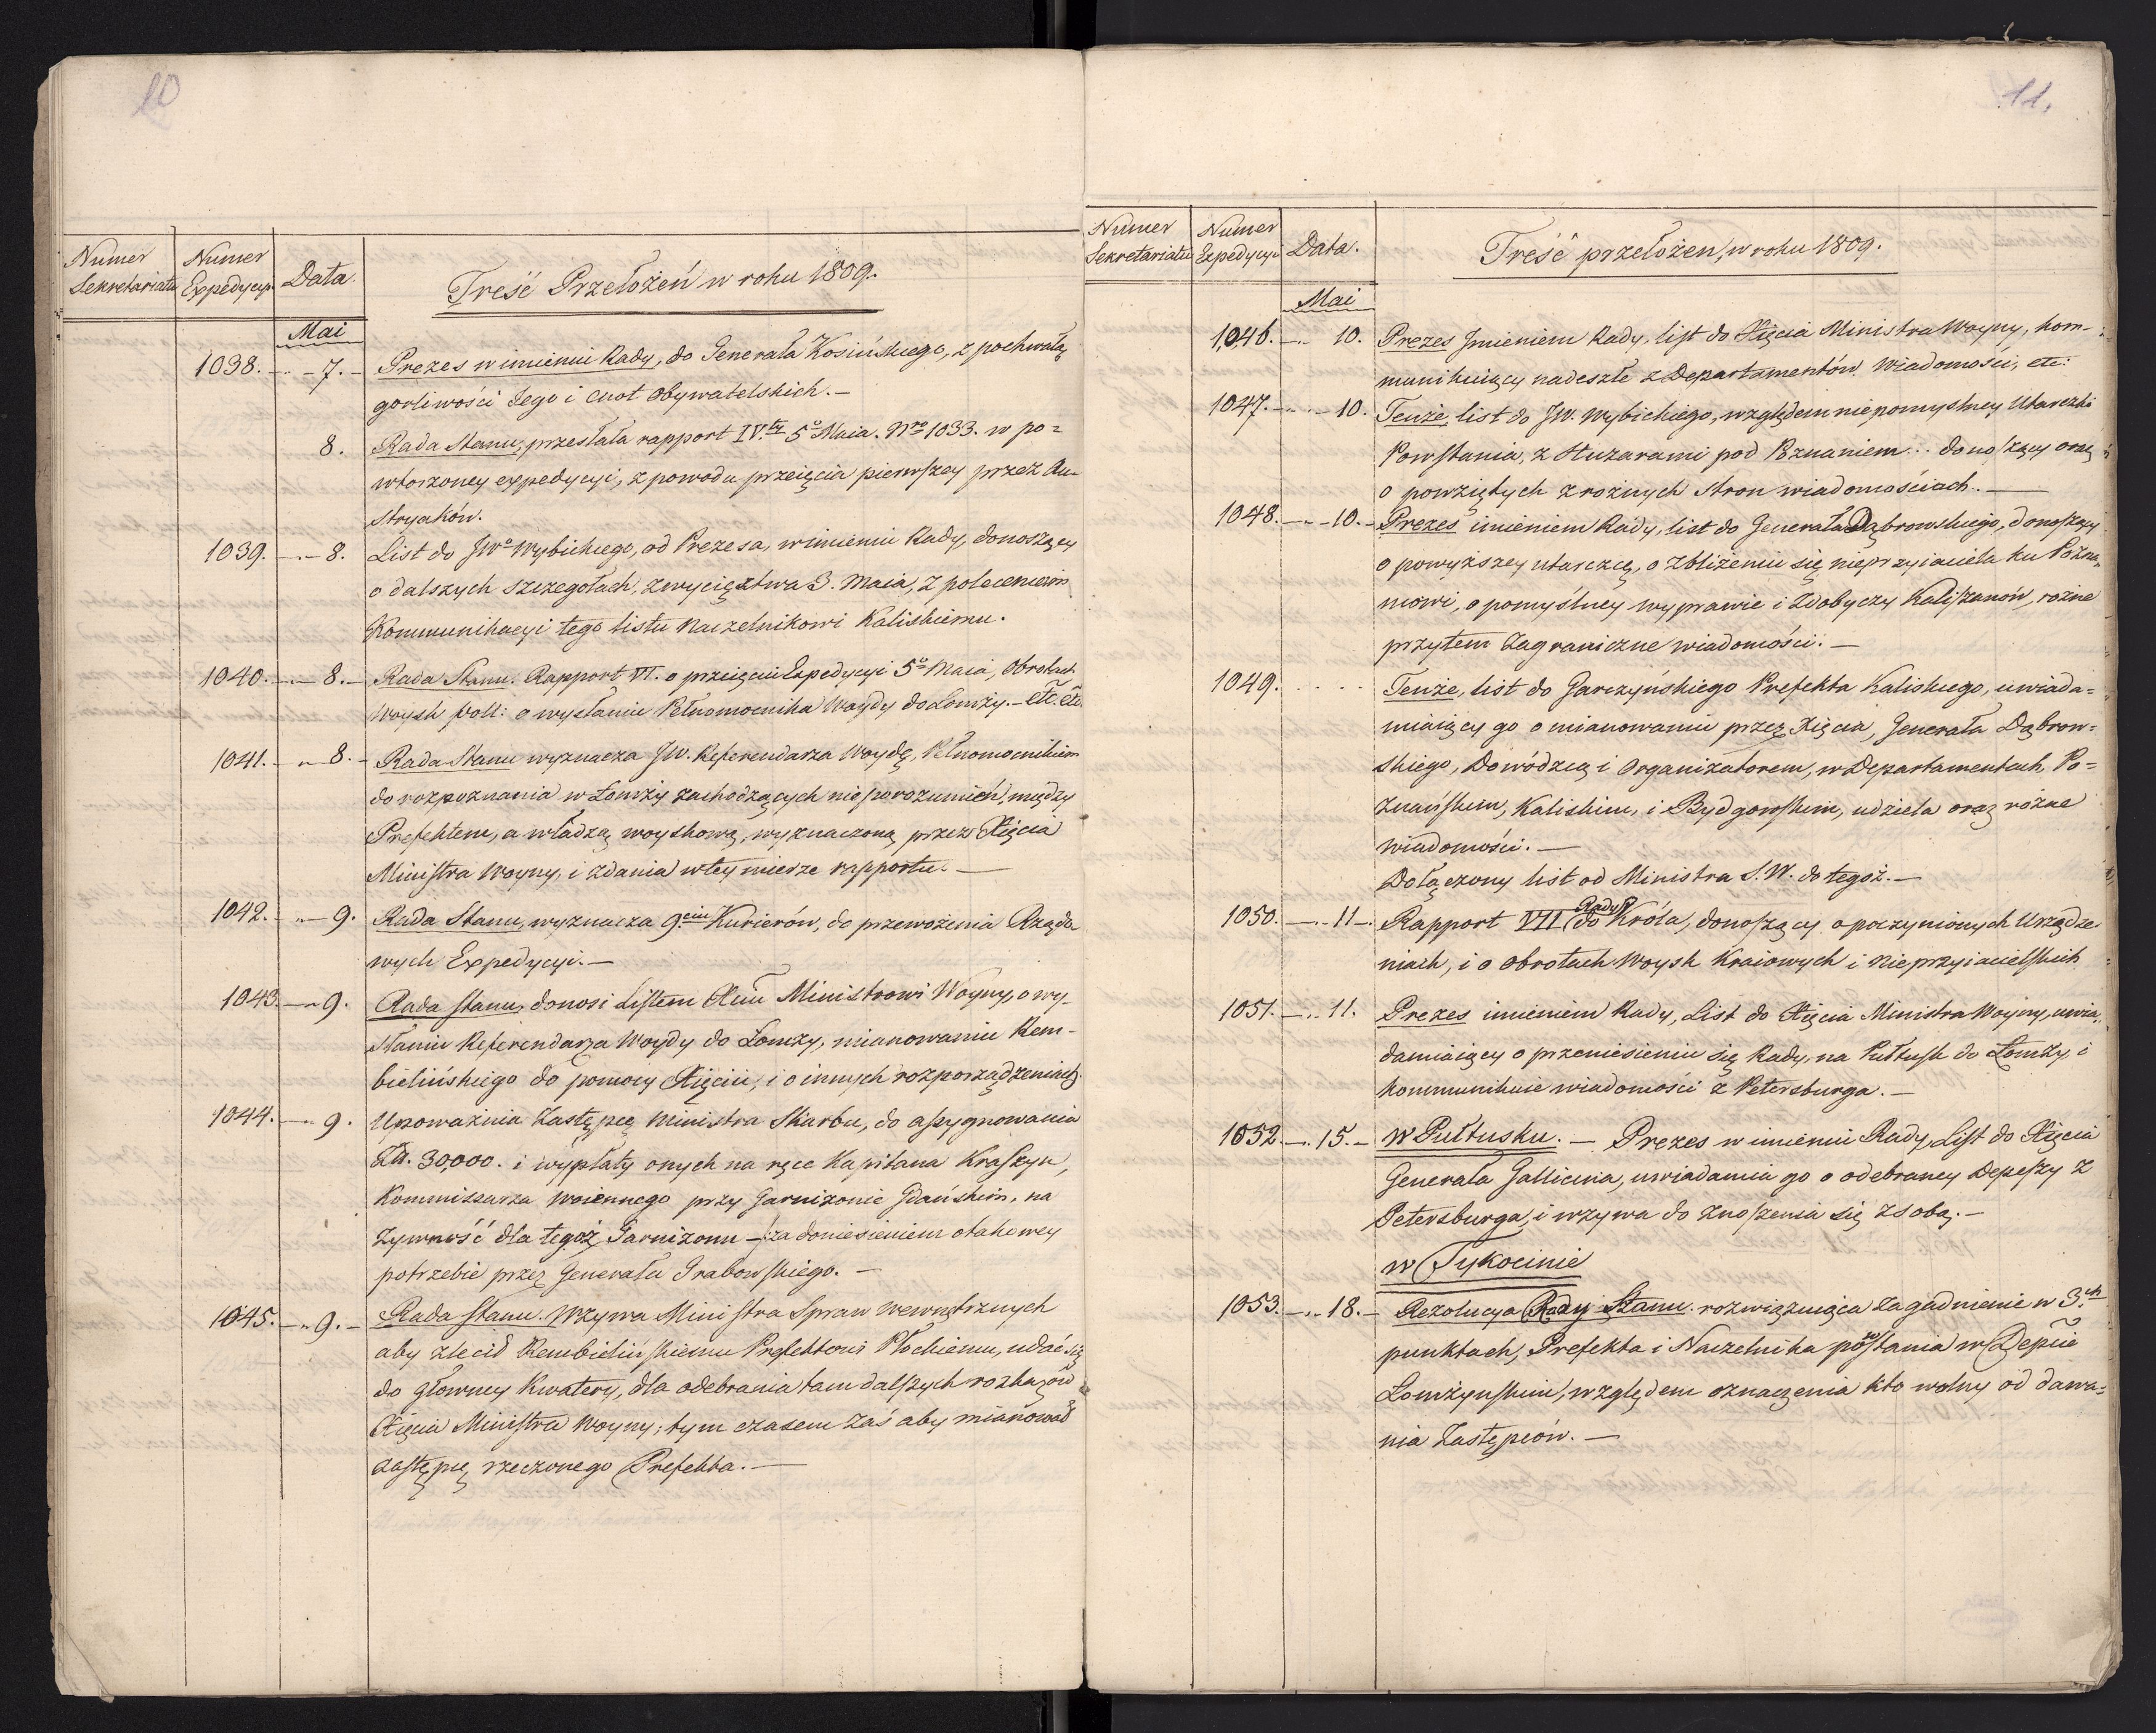 10
Numer Sekretariatu
Numer Expedycyi
Data.
Treść Przełożeń w roku 1809.
Mai
1038. — 7. — Prezes w imieniu Rady, do Generała Kosińskiego, z pochwałą
gorliwości Jego i cnot obywatelskich. —
8. Rada Stanu, przesłała rapport IV.ty 5o Maia. Nro 1033. w po=
wtorzoney expedycyi, z powodu przeięcia pierwszey przez Au-
stryaków.
1039. — 8. List do JWo Wybickiego, od Prezesa, w imieniu Rady, donoszący
o dalszych szczegołach, zwycięztwa 3. Maia, z poleceniem
Kommunikacyi tego listu Naczelnikowi Kaliskiemu.
1040. — 8. — Rada Stanu. Rapport VI. o przeięciu Expedycyi 5o Maia, Obrotach
Woysk Poll: o wysłaniu Pełnomocnika Woydy do Łomży. — etc. etc.
1041. — 8. — Rada Stanu wyznacza JW. Referendarza Woydę, Pełnomocnikiem
do rozpoznania w Łomży zachodzących nieporozumień, między
Prefektem, a władzą woyskową, wyznaczoną przez Xięcia
Ministra Woyny, i zdania w tey mierze rapportu. —
1042. — 9. Rada Stanu, wyznacza 9.ciu Kurierów, do przewożenia Rządo-
wych Expedycyi. —
1043. — 9. Rada Stanu, donosi Listem Xciu Ministrowi Woyny, o wy-
słaniu Referendarza Woydy do Łomży, mianowaniu Rem-
bielińskiego do pomocy Xięciu, i o innych rozporządzeniach.
1044. — 9. Upoważnia Zastępcę Ministra Skarbu, do assygnowania
Zł. 30,000. i wypłaty onych na ręce Kapitana Kraszyn,
Kommissarza woiennego przy Garnizonie Gdańskim, na
żywność dla tegoż Garnizonu — za doniesieniem o takowey
potrzebie przez Generała Grabowskiego. —
1045. — 9. — Rada Stanu. Wzywa Ministra Spraw Wewnętrznych
aby zlecił Rembielińskiemu Prefektowi Płockiemu, udać się
do głowney Kwatery, dla odebrania tam dalszych rozkazów
Xięcia Ministra Woyny; tym czasem zaś aby mianował
zastępcę rzeczonego Prefekta. —
11.
Numer Sekretariatu
Numer Expedycyi
Data.
Treść przełożen, w roku 1809.
Mai
1046. — 10. Prezes Jmieniem Rady, list do Xięcia Ministra Woyny, kom-
munikuiący nadeszłe z Departamentów Wiadomości, etc:
1047. — 10. Tenże, list do JW. Wybickiego, względem niepomyslney Utarczki
Powstania, z Huzarami pod Poznaniem... donoszący oraz
o powziętych z rożnych stron wiadomościach. —
1048. — 10. — Prezes imieniem Rady, list do Generała Dąbrowskiego, donoszący
o powyższey utarczce, o zbliżeniu się nieprzyiaciela ku Pozna-
niowi, o pomyślney wyprawie i zdobyczy Kaliszanów, rożne
przytem Zagraniczne wiadomości. —
1049. Tenże, list do Garczyńskiego Prefekta Kaliskiego, uwiada=
miaiący go o mianowaniu przez Xięcia, Generała Dąbrow=
skiego, Dowódzcą i Organizatorem, w Departamentach, Po=
znańskim, Kaliskim, i Bydgowskim, udziela oraz rózne
wiadomości. —
Dołączony list od Ministra S. W. do tegoż. —
1050. — 11 — Rapport VII Rady do Króla, donoszący o poczynionych Urządze-
niach, i o obrotach Woysk Kraiowych i Nieprzyiacielskich
1051. — 11. Prezes imieniem Rady, List do Xięcia Ministra Woyny, uwia-
damiaiący o przeniesieniu się Rady, na Pułtusk do Łomży, i
kommunikuie wiadomości z Petersburga. —
1052 — 15. — w Pułtusku. — Prezes w imieniu Rady, List do Xięcia
Generała Gallicina, uwiadamia go o odebraney Depeszy z
Petersburga, i wzywa do znoszenia się z sobą. —
w Tykocinie
1053. — 18. — Rezolucya Rady Stanu. rozwiązuiąca Zagadnienie w 3.ch
punktach, Prefekta i Naczelnika powstania w Depcie
Łomżynskim, względem oznaczenia kto wolny od dawa=
nia Zastępców. —